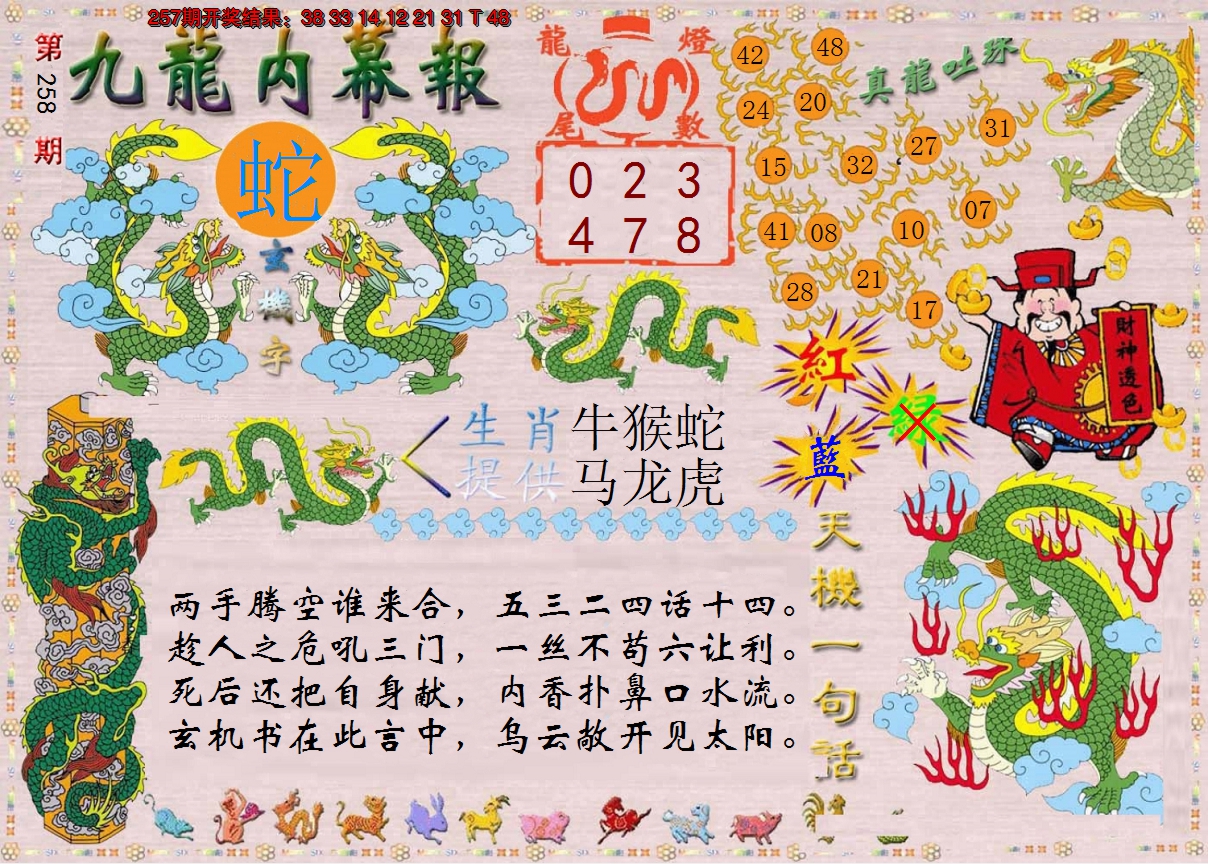 257期开奖结果：38 33 14 12 21 31 T 48
第258期
九龍内幕報
蛇
玄機字
龍燈
尾數
0 2 3
4 7 8
真龍吐珠
42 48
24 20
15 32 27 31
41 08 10 07
28 21 17
紅
绿
藍
財神透色
生肖提供
牛猴蛇
马龙虎
天機一句話
两手腾空谁来合，五三二四话十四。
趁人之危吼三门，一丝不苟六让利。
死后还把自身献，内香扑鼻口水流。
玄机书在此言中，乌云敞开见太阳。